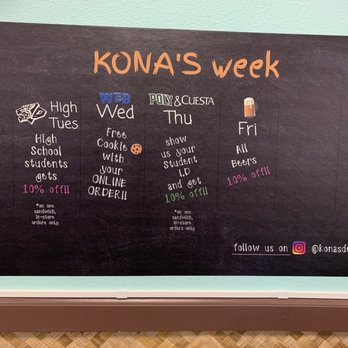 KONA'S week
High
Tues
High
School
students
gets
10% off!!
*on one
sandwich,
in-store
orders only
WEB
Wed
Free
Cookie
with
your
ONLINE
ORDER!!
POLY & CUESTA
Thu
show
us your
Student
I.D
and get
10% off!!
*on one
sandwich,
in-store
orders only
Fri
All
Beers
10% off!!
follow us on @konasde